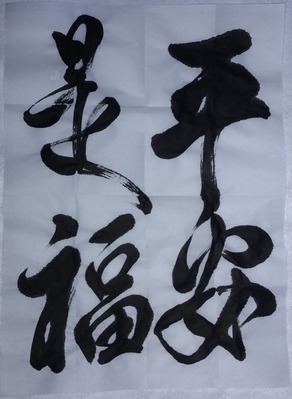 平安
是福